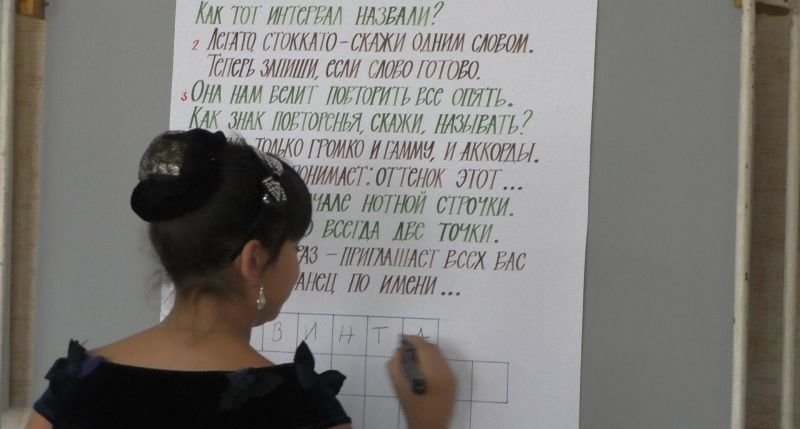 Как тот интервал назвали?
2 Легато, стоккато – скажи одним словом.
Теперь запиши, если слово готово.
3 Она нам велит повторить все опять.
Как знак повторенья, скажи, называть?
только громко и гамму, и аккорды.
понимает: оттенок этот...
нотной строчки.
всегда две точки.
– приглашает всех вас
по имени...
В И Н Т А